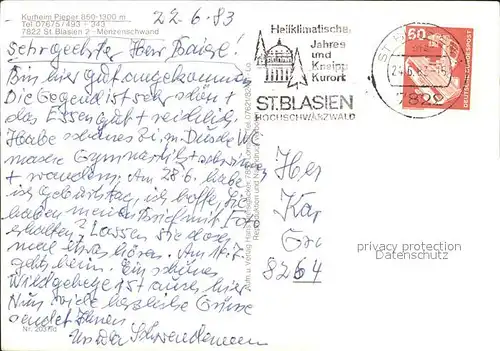 Kurheim Pieper 850-1300 m
Tel. 07675/493 + 343
7822 St. Blasien 2 - Menzenschwand
22.6.83
Sehr geehrter Herr
Bin hier gut angekommen
Die Gegend ist sehr schön +
das Essen gut + reichlich
Habe schönes Zi. m. Dusche WC
mache Gymnastik + schwimme
+ wandern. Am 28.6. habe
ich Geburtstag, ich hoffe, Sie
haben meinen Brief mit Foto
erhalten? Lassen Sie doch
mal etwas hören. Am 11.7.
gehts heim. Ein schönes
Wildgehege ist auch hier
Nun viele herzliche Grüsse
sendet Ihnen
Nr.
Heilklimatischer
Jahres
und
Kneipp
Kurort
ST. BLASIEN
HOCHSCHWARZWALD
ST. B
7822
60
DEUTSCHE BUNDESPOST
Her
Kar
8264
privacy protection
Datenschutz